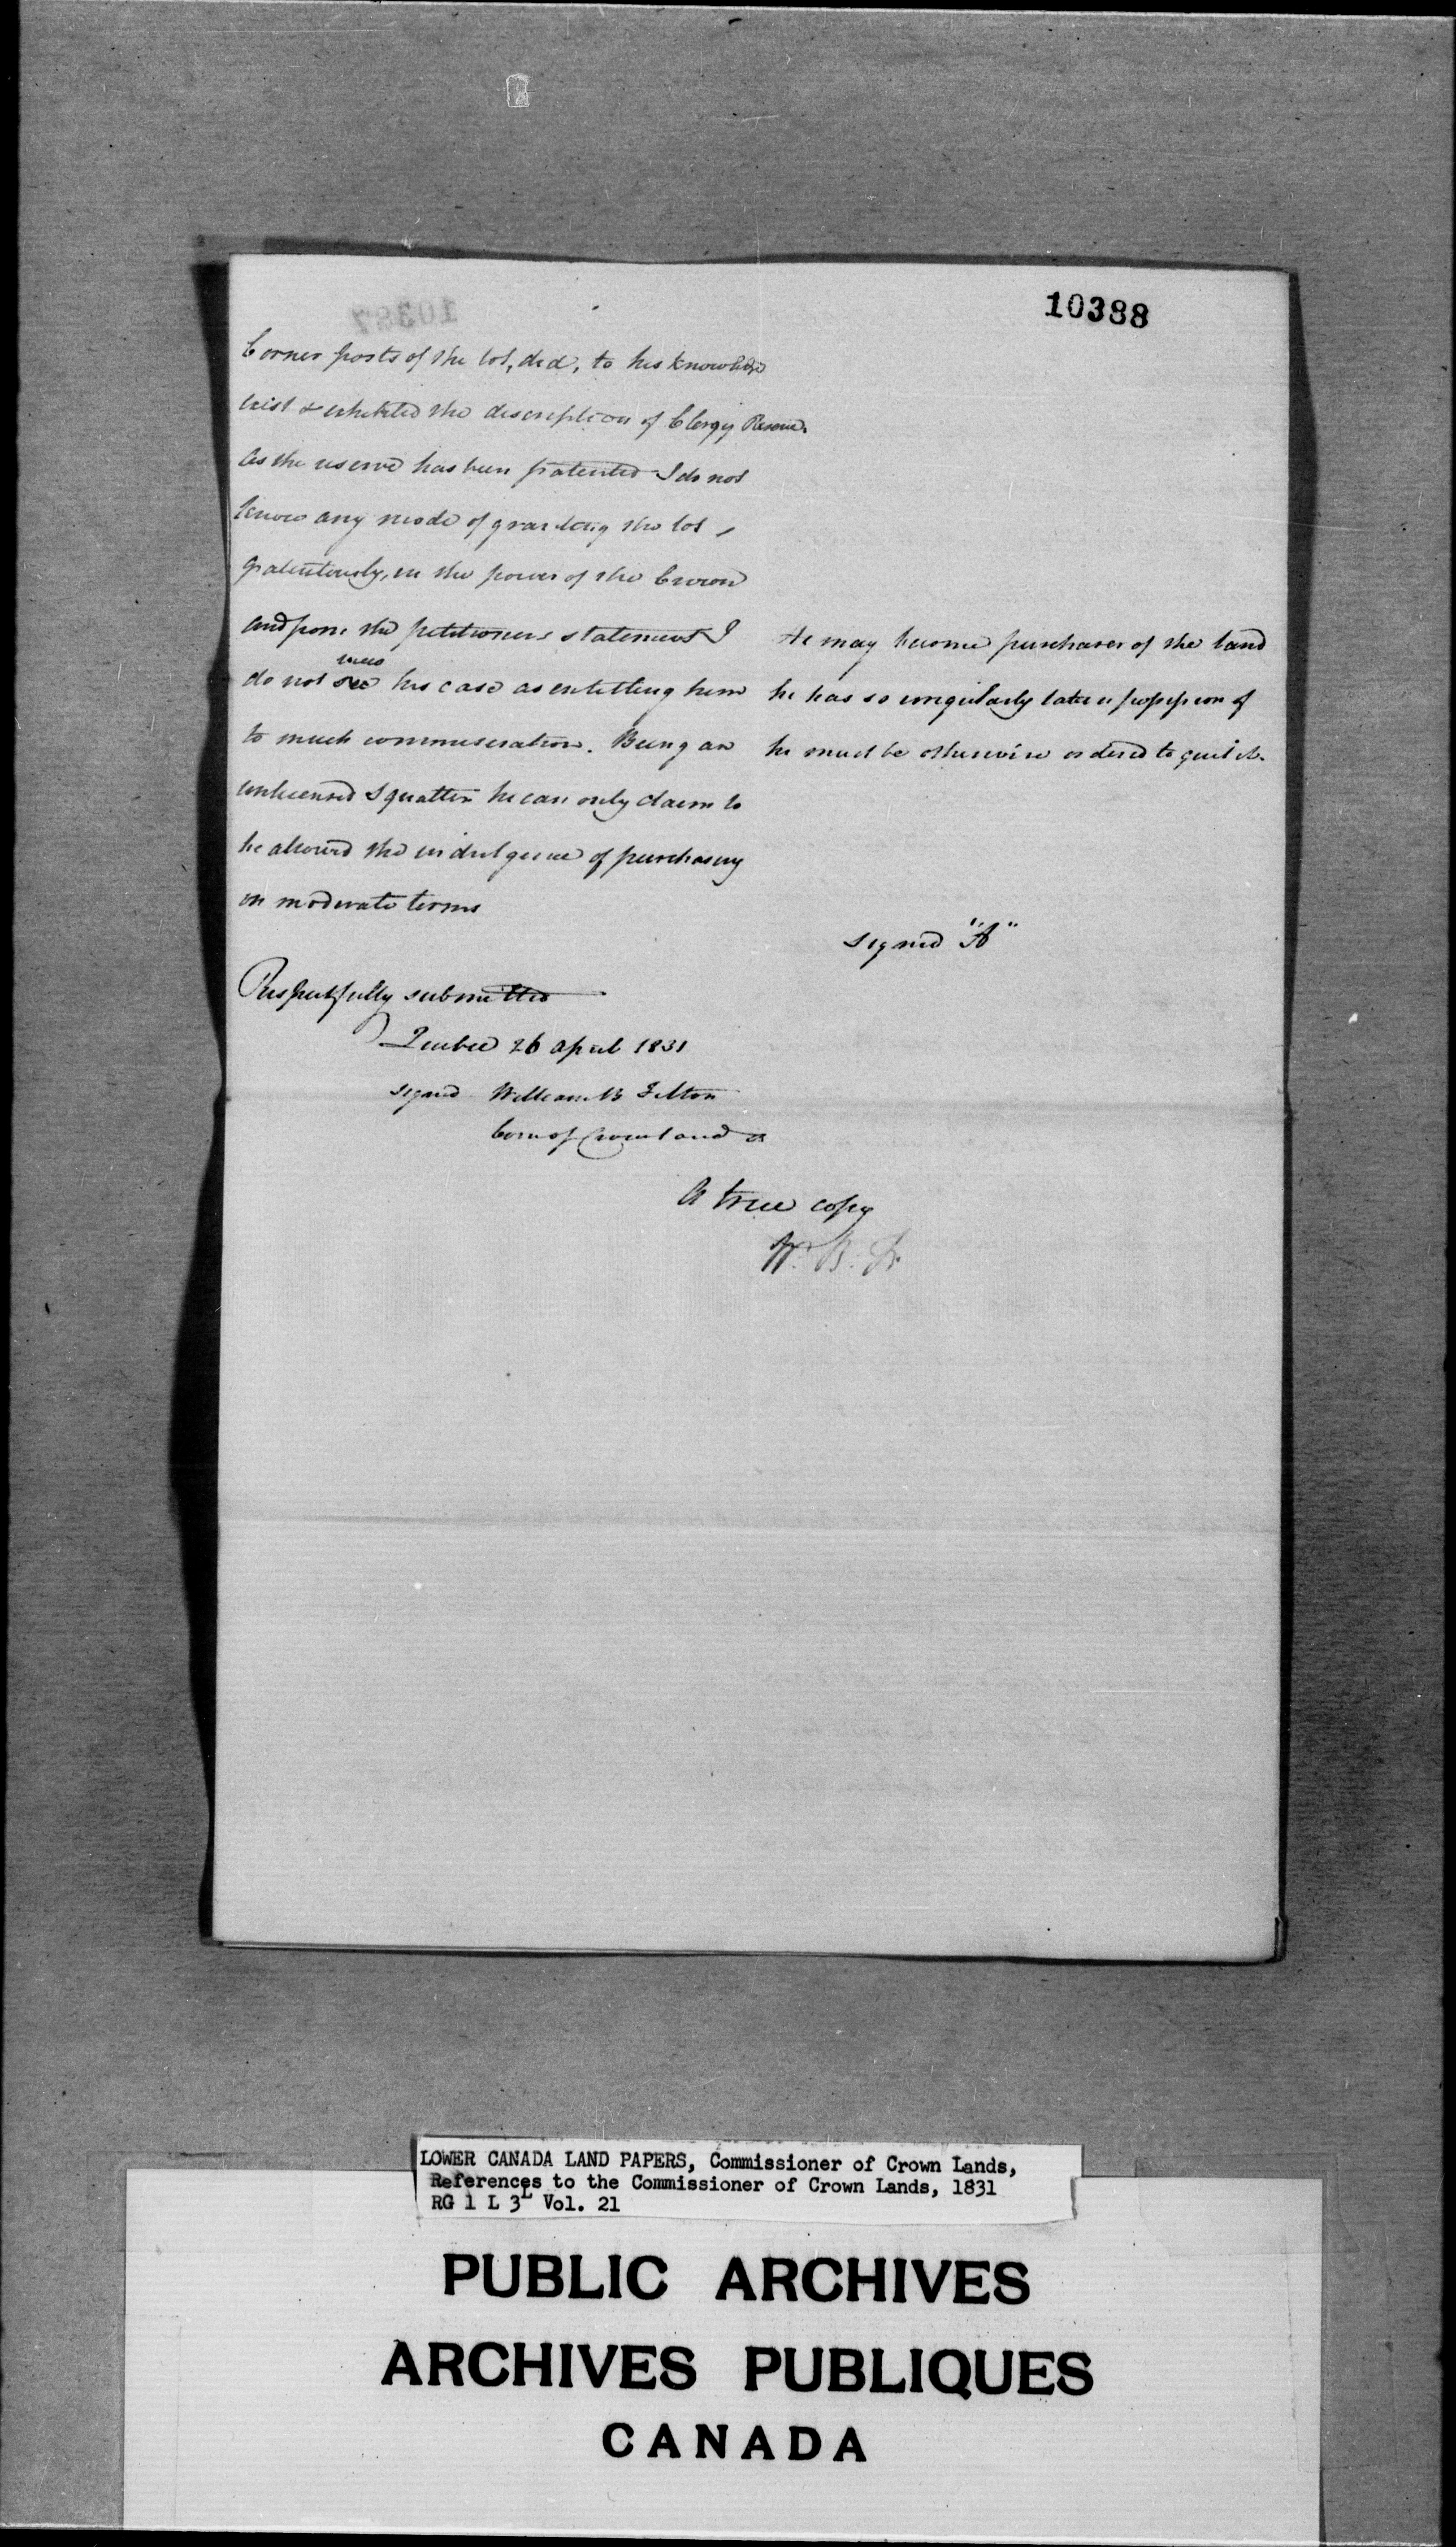 10388
10387
Corner posts of the lot, did, to his knowledge
exist & exhibited the description of Clergy Reserve.
As the reserve has been patented I do not
know any mode of granting the lot,
gratuitously, in the power of the Crown
and from the petitioners statement I
view
do not see his case as entitling him
to much commiseration. Being an
unlicensed squatter he can only claim to
be allowed the indulgence of purchasing
on moderate terms
He may become purchaser of the land
he has so irregularly taken possession of
he must be otherwise ordered to quit it.
signed "A"
Respectfully submitted
Quebec 26 April 1831
signed William B Felton
Com of Crown Lands
A true copy
W. B. F.
LOWER CANADA LAND PAPERS, Commissioner of Crown Lands,
References to the Commissioner of Crown Lands, 1831
RG 1 L 3L Vol. 21
PUBLIC ARCHIVES
ARCHIVES PUBLIQUES
CANADA